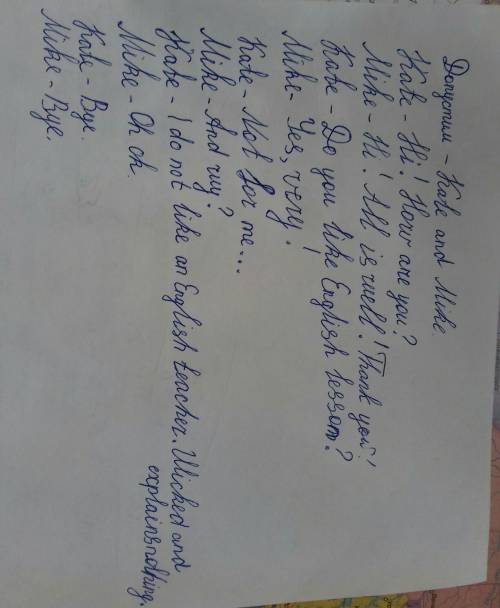 Допустим - Kate and Mike.
Kate - Hi! How are you?
Mike - Hi! All is well! Thank you!
Kate - Do you like English lesson?
Mike - Yes, very.
Kate - Not for me...
Mike - And why?
Kate - I do not like an English teacher. Wicked and
explains nothing.
Mike - Oh ok.
Kate - Bye.
Mike - Bye.